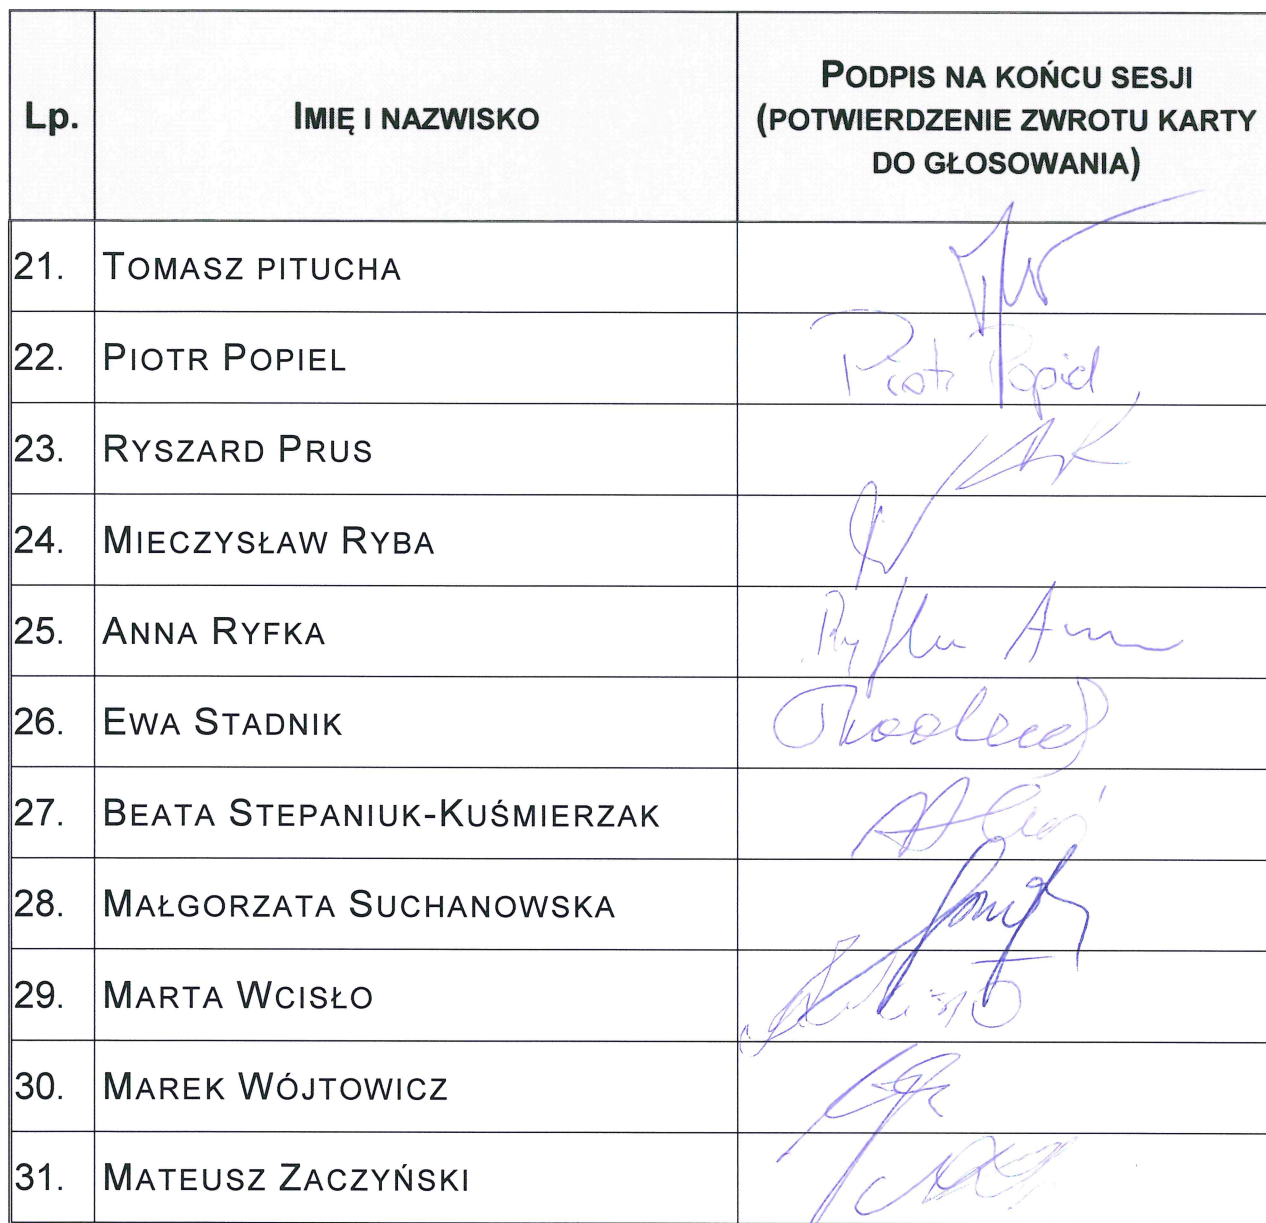 Lp.
IMIĘ I NAZWISKO
PODPIS NA KOŃCU SESJI
(POTWIERDZENIE ZWROTU KARTY
DO GŁOSOWANIA)
21. TOMASZ PITUCHA
22. PIOTR POPIEL Piotr Popiel
23. RYSZARD PRUS
24. MIECZYSŁAW RYBA
25. ANNA RYFKA Ryfka Anna
26. EWA STADNIK
27. BEATA STEPANIUK-KUŚMIERZAK
28. MAŁGORZATA SUCHANOWSKA
29. MARTA WCISŁO
30. MAREK WÓJTOWICZ
31. MATEUSZ ZACZYŃSKI